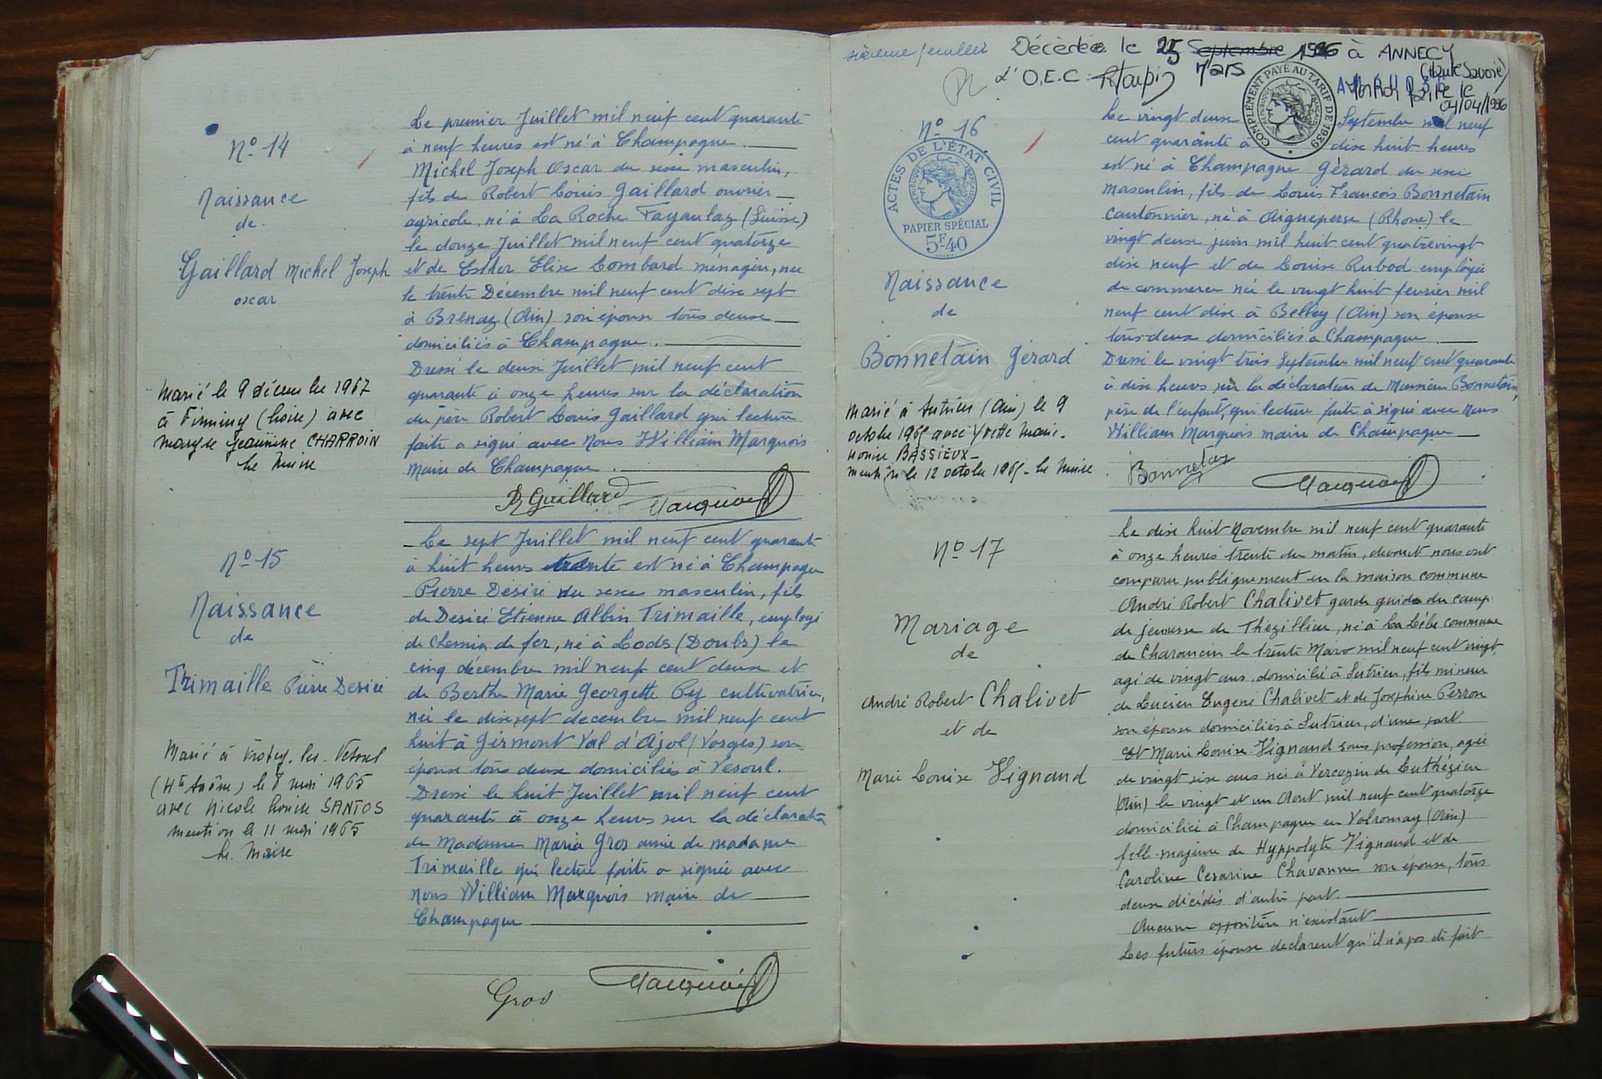 Nº 14
Naissance
de
Gaillard Michel Joseph
oscar
Marié le 9 décembre 1967
à Firminy (Loire) avec
Maryse Jeannine CHARROIN
Le Maire
Le premier Juillet mil neuf cent quarante
à neuf heures est né à Champagne
Michel Joseph Oscar du sexe masculin,
fils de Robert Louis Gaillard ouvrier
agricole, né à La Roche (Suisse)
le douze Juillet mil neuf cent quatorze
et de Esther Elise Lombard ménagère, née
le trente Décembre mil neuf cent dix sept
à Brénaz (Ain) son épouse tous deux
domiciliés à Champagne.
Dressé le deux Juillet mil neuf cent
quarante à onze heures sur la déclaration
du père Robert Louis Gaillard qui lecture
faite a signé avec Nous William Marquois
Maire de Champagne.
R Gaillard Marquois
Nº 15
Naissance
de
Trimaille Pierre Désiré
Marié à -les-Vesoul
(Hte Saône) le 8 mai 1965
avec Nicole SANTOS
mention le 11 mai 1965
Le Maire
Le sept Juillet mil neuf cent quarante
à huit heures trente est né à Champagne
Pierre Désiré du sexe masculin, fils
de Désiré Etienne Albin Trimaille, employé
de chemin de fer, né à Lods (Doubs) le
cinq décembre mil neuf cent deux et
de Berthe Marie Georgette cultivatrice,
née le dix sept decembre mil neuf cent
huit à Girmont Val d'Ajol (Vosges) son
épouse tous deux domiciliés à Vesoul.
Dressé le huit Juillet mil neuf cent
quarante à onze heures sur la déclaration
de Madame Maria Gros amie de madame
Trimaille qui lecture faite a signée avec
Nous William Marquois maire de
Champagne
Gros Marquois
sixième feuillet
Décédée le 25 Septembre 1996 à ANNECY
Mars
(Haute Savoie)
d'O.E.C.
04/04/1996
COMPLÉMENT PAYÉ AU TARIF DE 1939
Nº 16
ACTES DE L'ÉTAT CIVIL
PAPIER SPÉCIAL
5F40
Naissance
de
Bonnetain Gérard
Marié à Sutrieu (Ain) le 9
octobre 1965 avec Yvette Marie-
Louise BASSIEUX-
mention le 12 octobre 1965- Le Maire
Le vingt deux Septembre mil neuf
cent quarante à dix huit heures
est né à Champagne Gérard du sexe
masculin, fils de Louis François Bonnetain
cantonnier, né à Aigueperse (Rhône) le
vingt deux juin mil huit cent quatre vingt
dix neuf et de Louise Rubod employée
de commerce née le vingt huit fevrier mil
neuf cent dix à Belley (Ain) son épouse
tous deux domiciliés à Champagne
Dressé le vingt trois Septembre mil neuf cent quarante
à dix heures, sur la déclaration de Monsieur Bonnetain,
père de l'enfant, qui lecture faite a signé avec Nous
William Marquois maire de Champagne
Bonnetain Marquois
Nº 17
Mariage
de
André Robert Chalivet
et de
Marie Louise Vignand
Le dix huit Novembre mil neuf cent quarante
à onze heures trente du matin, devant nous ont
comparu publiquement en la maison commune
André Robert Chalivet garde guide du camp
de jeunesse de Thézillieu, né à commune
de Charancin le trente Mars mil neuf cent vingt
agé de vingt ans, domicilié à Sutrieu, fils mineur
de Lucien Eugène Chalivet et de Joséphine Perron
son épouse domiciliés à Sutrieu, d'une part
Et Marie Louise Vignand sans profession, agée
de vingt six ans née à de Cuthézieu
(Ain) le vingt et un Aout mil neuf cent quatorze
domiciliée à Champagne en Valromey (Ain)
fille majeure de Hyppolyte Vignand et de
Caroline Césarine Chavanne son épouse, tous
deux décédés d'autre part.
Aucune opposition n'existant
Les futurs époux declarent qu'il n'a pas été fait